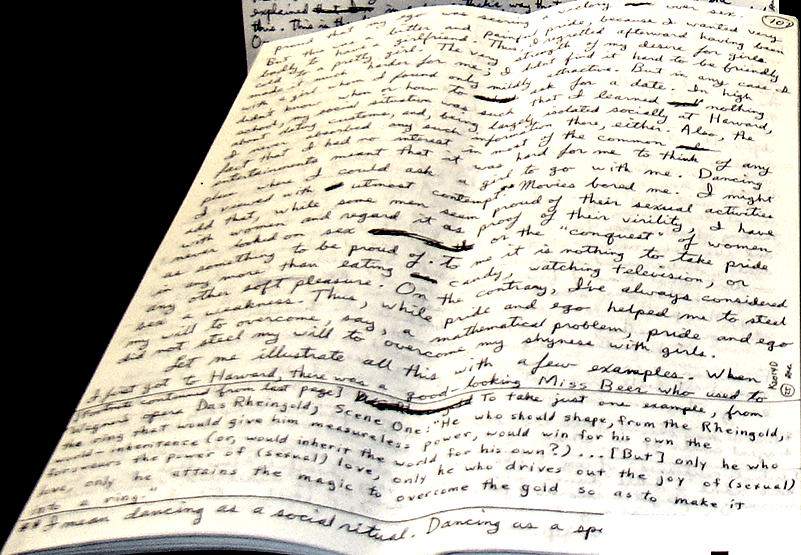 explained
this. This is the
proud that my ego was scoring a victory over sex.
107
But this was a bitter and painful pride, because I wanted very
badly to have a girlfriend. Thus, I regretted afterward having been
cold to a pretty girl. The very strength of my desire for girls
made it much harder for me; I didnt find it hard to be friendly
with a girl whom I found only mildly attractive. But in any case I
didn't know when or how to ask for a date. In high
school my social situation was such that I learned nothing
about dating customs, and, being largely isolated socially at Harvard,
I never absorbed any such information there, either. Also, the
fact that I had no interest in most of the common
entertainments meant that it was hard for me to think of any
place where I could ask a girl to go with me. Dancing
I viewed with utmost contempt.** Movies bored me. I might
add that, while some men seem proud of their sexual activities
with women and regard it as proof of their virility, I have
never looked on sex or the "conquest" of women
as something to be proud of. To me it is nothing to take pride
in any more than eating candy, watching television, or
any other soft pleasure. On the contrary, I've always considered
sex a weakness. Thus, while pride and ego helped me to steel
my will to overcome, say, a mathematical problem, pride and ego
did not steel my will to overcome my shyness with girls.
Let me illustrate all this with a few examples. When
I first got to Harvard, there was a good-looking Miss Beer who used to
[Footnote continued from last page] To take just one example, from
Wagner's opera Das Rheingold, Scene One: "He who should shape, from the Rheingold,
the ring that would give him measureless power, would win for his own the
world-inheritence (or, would inherit the world for his own?)... [But] only he who
forswears the power of (sexual) love, only he who drives out the joy of (sexual)
love, only he attains the magic to overcome the gold so as to make it
into a ring."
** I mean dancing as a social ritual. Dancing as a